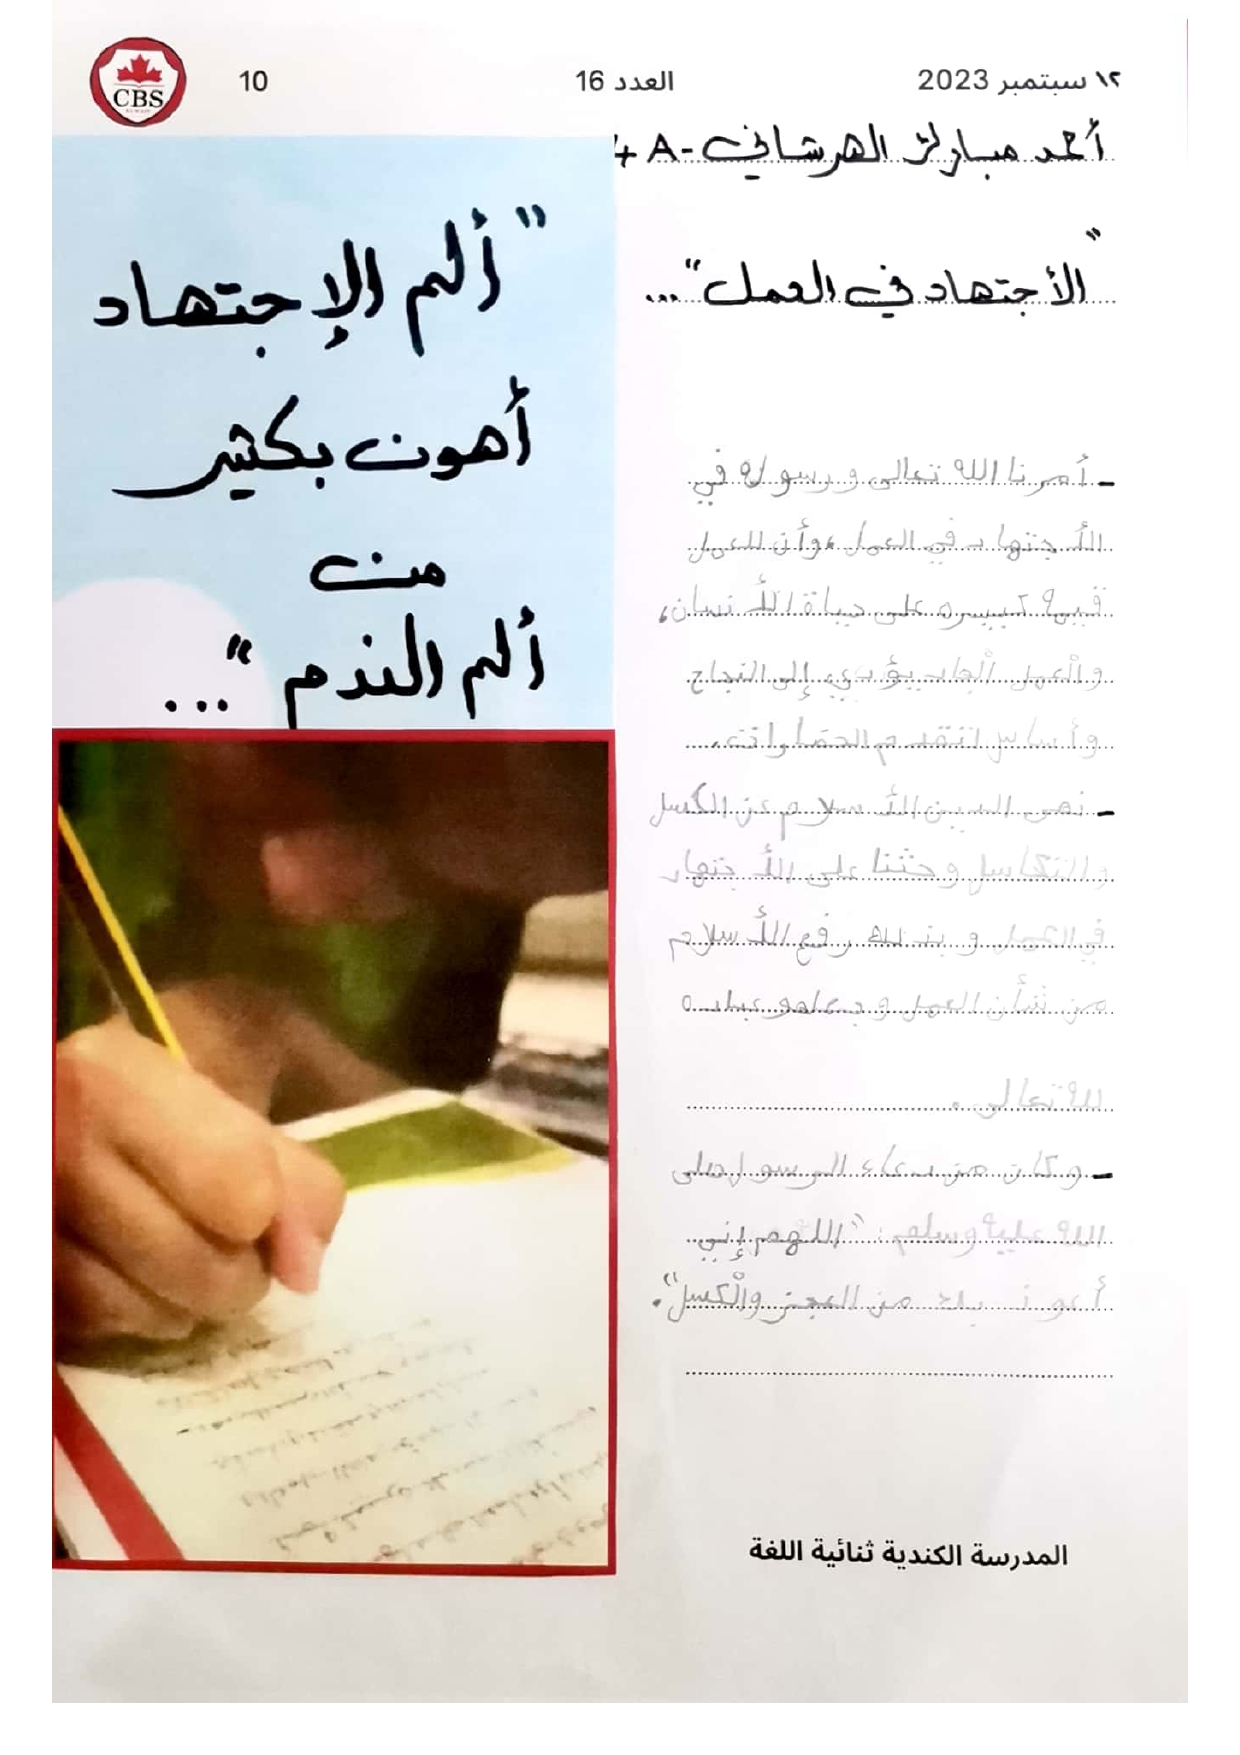 CBS
10
العدد 16
١٢ سبتمبر 2023
أحمد مبارك الهرشاني - 4A
"الأجتهاد في العمل"...
"ألم الإجتهاد
أهون بكثير
من
ألم الندم"...
- أمرنا الله تعالى ورسوله في
الأجتهاد في العمل وأن للعمل
قيمة كبيره على حياة الأنسان،
والْعمل الْجاد يؤدي إلى النجاح
وأساس التقدم الحضارات.
- نهى الدين الأسلام عن الكسل
والتكاسل وحثنا على الأجتهاد
في العمل و بذلك رفع الأسلام
من شأن العمل وجعلهو عباده
لله تعالى.
- وكان من دعاء الرسول صلى
الله علية وسلم: "اللهم إني
أعوذ بك من العجز والْكسل".
المدرسة الكندية ثنائية اللغة